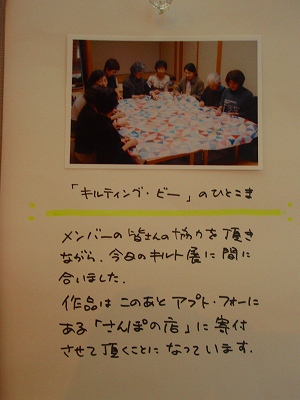 「キルティング・ビー」のひとこま
メンバーの皆さんの協力を頂き
ながら、今日のキルト展に間に
合いました.
作品は このあと アプト・フォーに
ある「さんぽの店」に 寄付
させて頂くことに なっています.